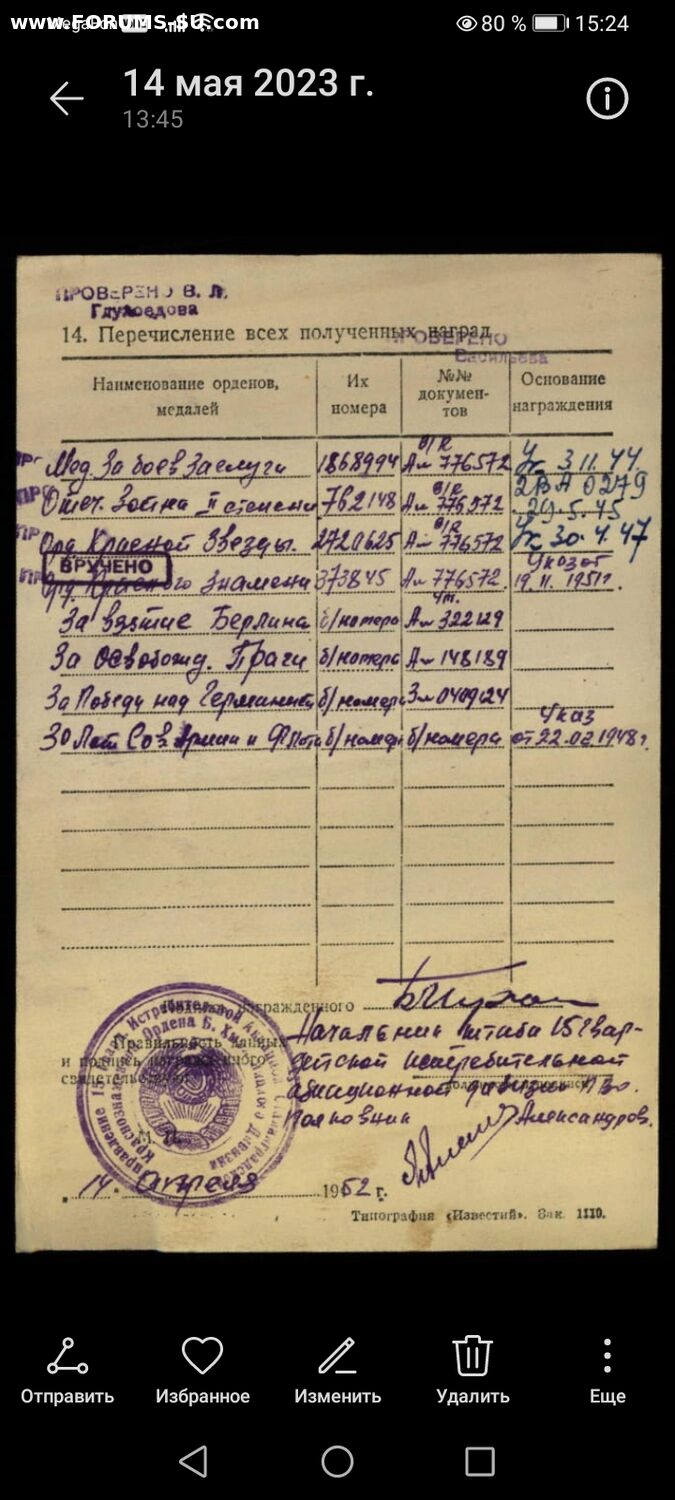 www.FORUMS-SU.com
80 % 15:24
14 мая 2023 г.
13:45
ПРОВЕРЕНО В. Л.
Глуховедова
14. Перечисление всех полученных наград
ПРОВЕРЕНО
Васильева
Наименование орденов, медалей
Их номера
№№ докумен-тов
Основание награждения
Мед. За боев Заслуги 1868994 А № 776572 Ук 3 11. 44.
Отеч. Война II степени 762148 А № 776572 2ВА 0279 29.5.45
Орд Красной Звезды. 2720625 А № 776572 Ук 30.4.47
ВРУЧЕНО
Орд. Красного Знамени 373845 А № 776572 Указ от 19.11.1951г.
За взятие Берлина б/номера А № 322129
За Освобожд. Праги б/номера А № 148189
За Победу над Германией б/номера З № 0409124
30 Лет Сов Армии и Флота б/номера б/номера Указ от 22.02.1948г.
Подпись награжденного
Правильность данных
и подпись награжденного
свидетельствую:
Начальник штаба 15 Гвар-
дейской истребительной
авиационной дивизии ПВО.
Полковник Александров.
М. П.
"14" Апреля 1952 г.
Типография «Известий». Зак. 1110.
Отправить
Избранное
Изменить
Удалить
Еще